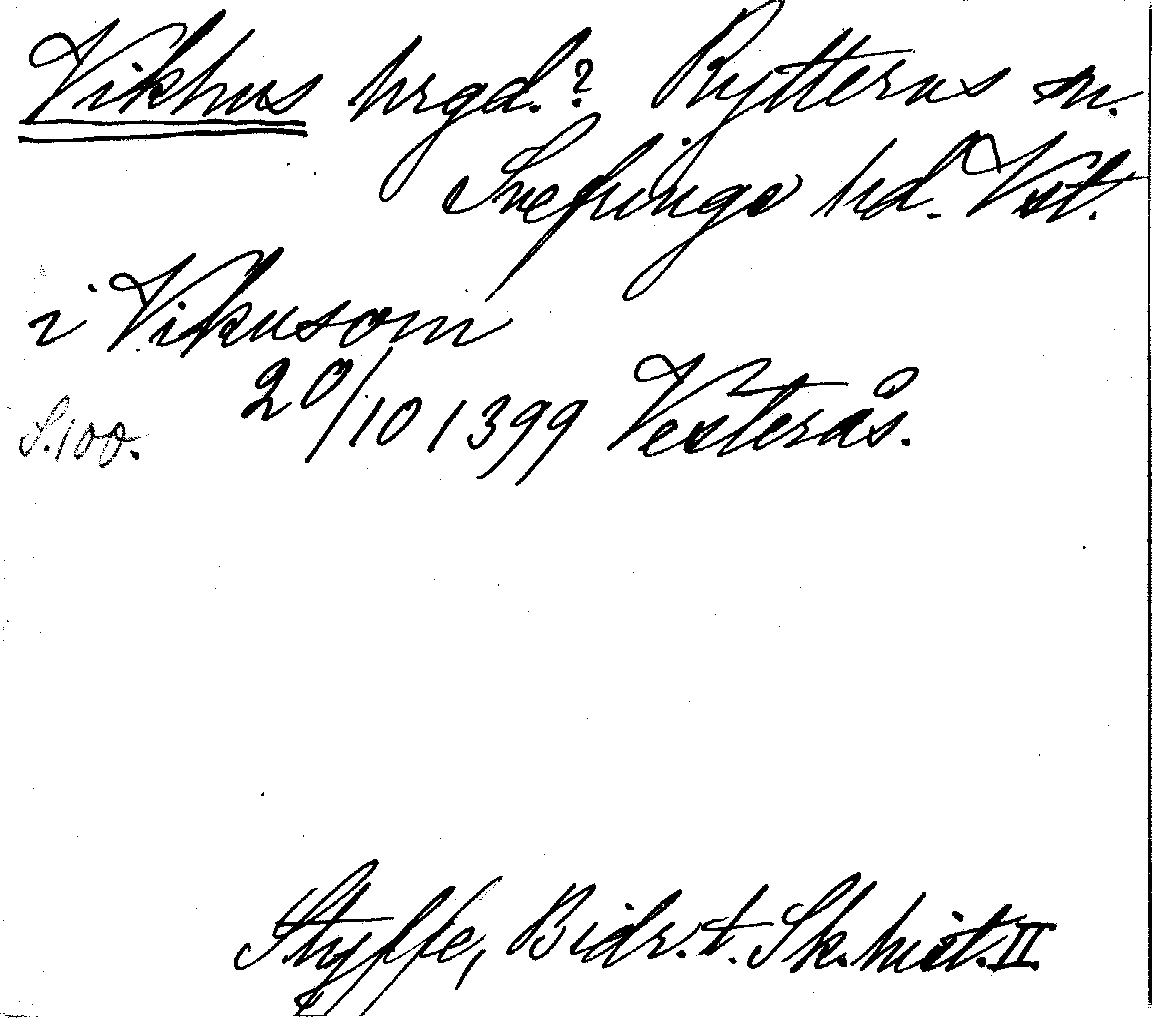 Vikhus hrgd.? Rytterns sn.
Snefringe hd. Vst.
i Vikusom
20/10 1399 Vesterås.
S. 100.
Styffe, Bidr. t. Sk. hist. II.